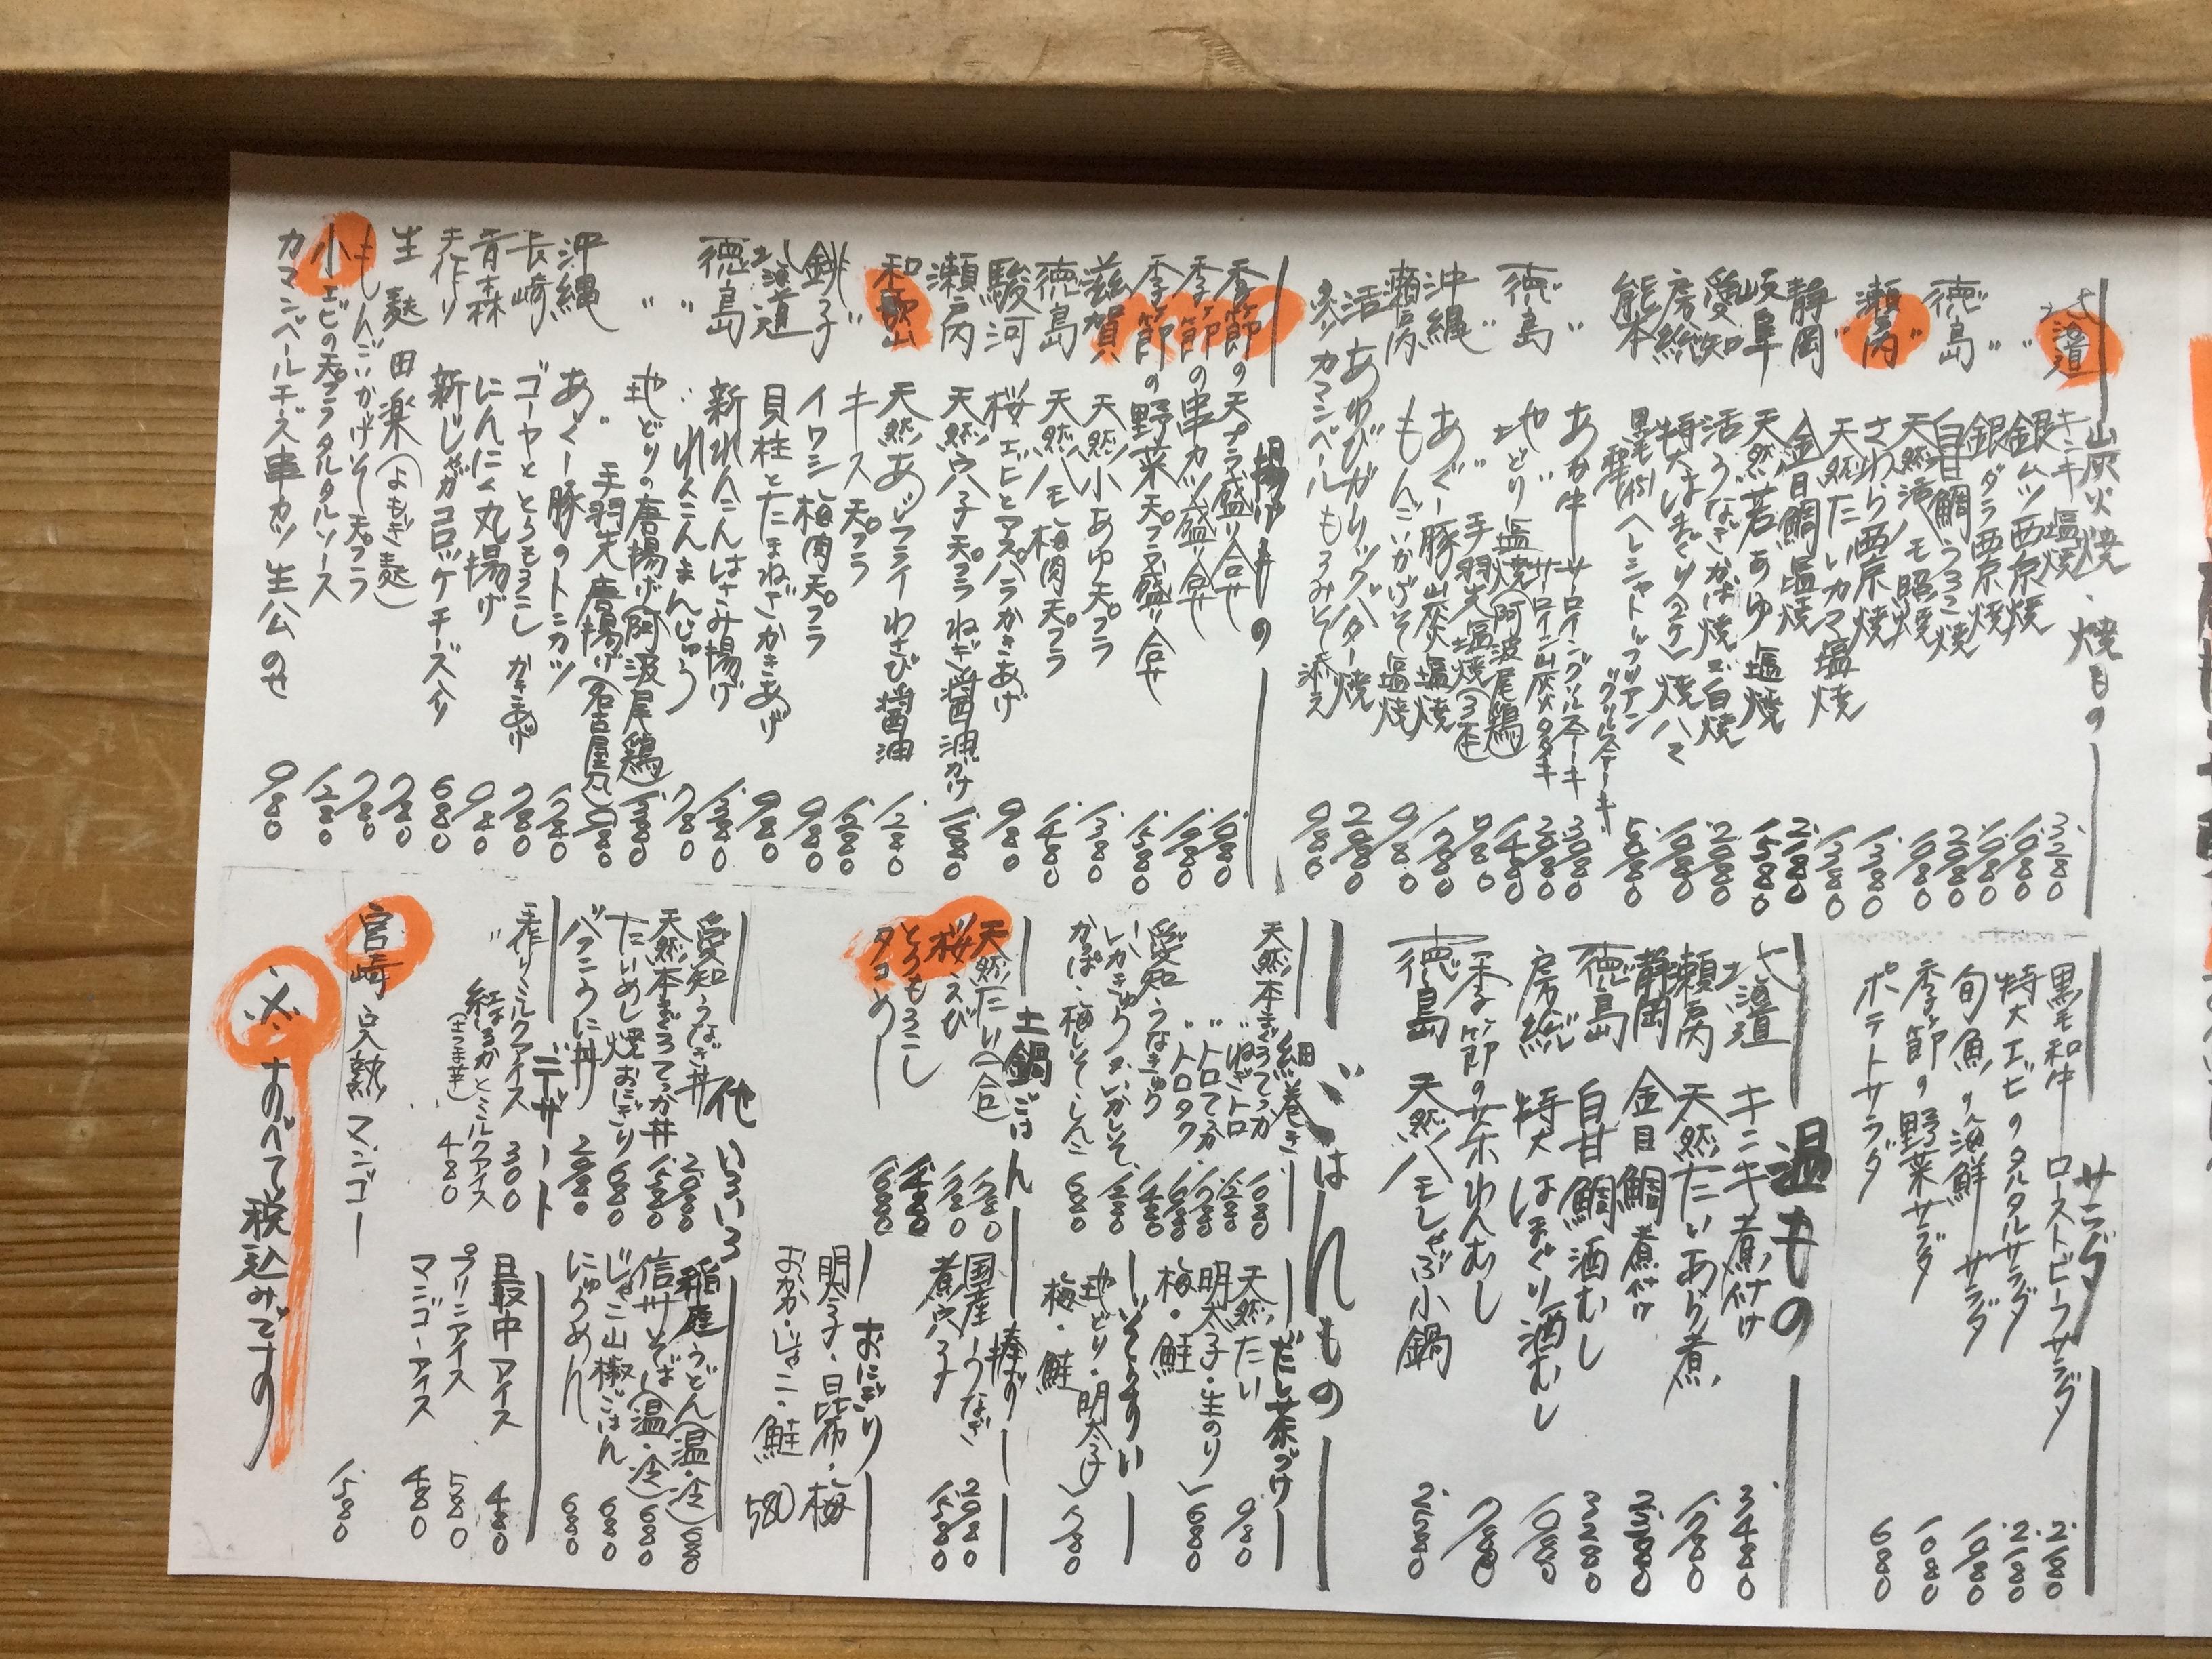 炭火焼・焼もの
北海道 キンキ塩焼 3.280
〃 銀ムツ西京焼 1.080
〃 銀ダラ西京焼 1.080
徳島 白甘鯛うろこ焼 2.080
〃 天然活ハモ照焼
瀬戸内 さわら西京焼 1.380
〃 天然たいカマ塩焼
静岡 金目鯛塩焼 2.180
岐阜 天然若あゆ塩焼 1.580
愛知 活うなぎかば焼 白焼 2.080
房総 特大はまぐり 焼ハマ
熊本 黒毛和牛 シャトーブリアン ステーキ
〃 あか牛 サーロイン ステーキ 3.080
サーロイン炭火タタキ 2.080
徳島 地どり塩焼(阿波尾鶏) 1.480
〃 手羽先塩焼
沖縄 あぐー豚炭火塩焼
瀬戸内 もんごいかげそ塩焼
活あわびガーリックバター焼
炙りカマンベールもろみそ添え 980
揚げもの
季節の天プラ盛り合せ
季節の串カツ盛り合せ
季節の野菜天プラ盛り合せ 1.580
滋賀 天然小あゆ天プラ
徳島 天然ハモ梅肉天プラ 1.480
駿河 桜エビとアスパラかきあげ 980
瀬戸内 天然穴子天プラ ねぎ醤油がけ
和歌山 天然あじフライ わさび醤油
〃 キス天プラ 1.280
銚子 イワシ梅肉天プラ 980
北海道 貝柱とたまねぎかきあげ 980
徳島 新れんこんはさみ揚げ 1.380
〃 れんこんまんじゅう 780
〃 地どりの唐揚げ(阿波尾鶏) 1.380
手羽先唐揚げ(名古屋風) 980
沖縄 あぐー豚のトンカツ
長崎 ゴーヤととうもろこし かきあげ 780
青森 にんにく丸揚げ
手作り 新じゃがコロッケチーズ入り 680
生麩田楽(よもぎ麩) 780
もんごいかげそ天プラ 780
小エビの天プラ タルタルソース
カマンベールチーズ串カツ生ハムのせ 980
サラダ
黒毛和牛ローストビーフサラダ 2.180
特大エビのタルタルサラダ 2.180
旬魚の海鮮サラダ
季節の野菜サラダ 1.080
ポテトサラダ 680
温もの
北海道 キンキ煮付け 3.480
瀬戸内 天然たいあら煮
静岡 金目鯛煮付け
徳島 白甘鯛酒むし 3.280
房総 特大はまぐり酒むし 1.080
季節の茶わんむし
徳島 天然ハモしゃぶ小鍋 2.580
ごはんもの
細巻き
天然本まぐろてっか 1.080
〃 ねぎトロ 1.280
〃 トロてっか
〃 トロタク
愛知 うなきゅう 1.480
いかきゅう・いかしそ
かっぱ・梅しそ・しんこ 680
だし茶づけ
天然たい 980
明太子・生のり
梅・鮭 680
いそうすい
地どり・明太子
梅・鮭 780
土鍋ごはん
天然たい(一合)
桜えび
とうもろこし
タコめし
棒ずし
国産うなぎ 2.080
煮穴子 1.580
おにぎり
明太子・昆布・梅
おかか・じゃこ・鮭 580
他いろいろ
愛知うなぎ丼 2.080
天然本まぐろてっか丼 1.580
たいめし焼おにぎり 680
バフンうに丼
稲庭うどん(温・冷) 680
信州そば(温・冷) 680
じゃこ山椒ごはん 680
にゅうめん 680
デザート
手作りミルクアイス 300
〃 紅はるかとミルクアイス 480
(さつま芋)
最中アイス 480
プリンアイス 580
マンゴーアイス 480
宮崎 完熟マンゴー 1.580
※すべて税込みです